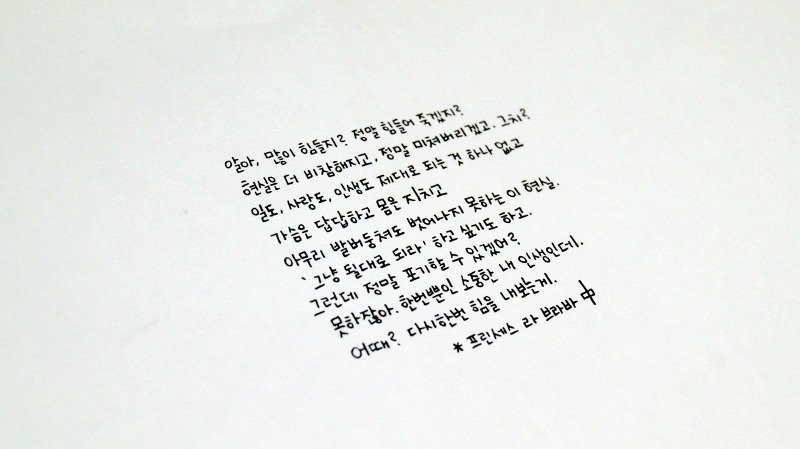 알아, 많이 힘들지? 정말 힘들어 죽겠지?
현실은 더 비참해지고, 정말 미쳐버리겠고. 그치?
일도, 사랑도, 인생도 제대로 되는 것 하나 없고
가슴은 답답하고 몸은 지치고
아무리 발버둥쳐도 벗어나지 못하는 이 현실.
'그냥 될대로 되라' 하고 싶기도 하고.
그런데 정말 포기할 수 있겠어?
못하잖아. 한번뿐인 소중한 내 인생인데.
어때? 다시한번 힘을 내보는게.
* 프린세스 라 브라바 中